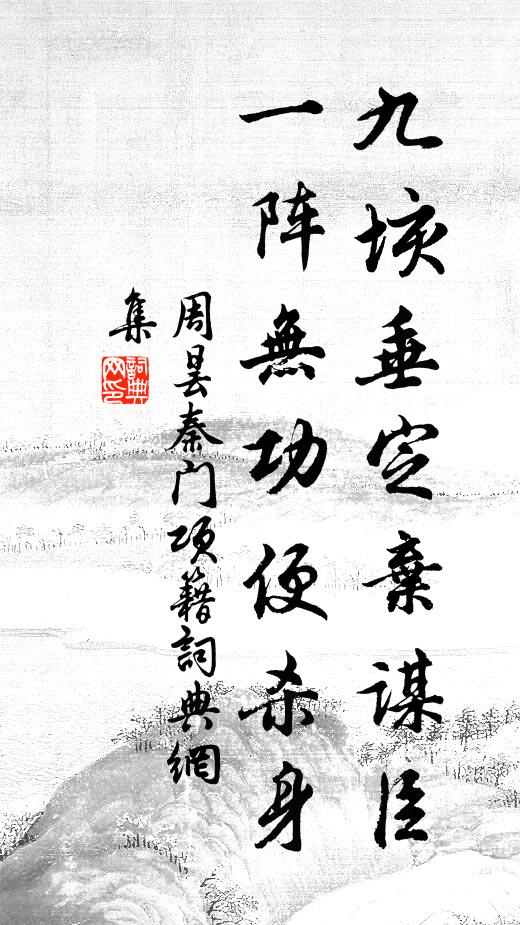 九垓垂定棄谋臣
一阵無功便杀身
周昙秦门项籍詞典網
集
詞典
网印